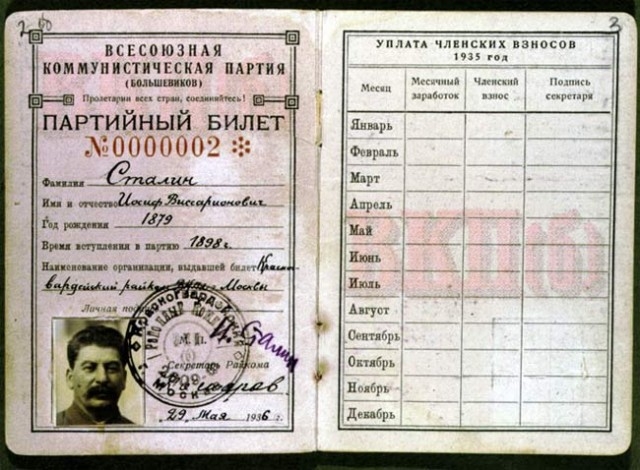 2
3
ВСЕСОЮЗНАЯ
КОММУНИСТИЧЕСКАЯ ПАРТИЯ
(БОЛЬШЕВИКОВ)
Пролетарии всех стран, соединяйтесь!
ПАРТИЙНЫЙ БИЛЕТ
№0000002
Фамилия Сталин
Имя и отчество Иосиф Виссарионович
Год рождения 1879
Время вступления в партию 1898г.
Наименование организации, выдавшей билет Красно-
гвардейский райком г. Москвы
Личная
М. П.
И. Сталин
Секретарь Райкома
МОСКВА
29 мая 1936 г.
УПЛАТА ЧЛЕНСКИХ ВЗНОСОВ
1935 год
Месяц Месячный заработок Членский взнос Подпись секретаря
Январь
Февраль
Март
Апрель
Май
Июнь
Июль
Август
Сентябрь
Октябрь
Ноябрь
Декабрь
ВКП(б)